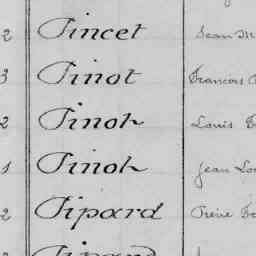 2 Pincet Jean M
3 Pinot Francois
2 Pinoh Louis
1 Pinoh Jean Lou
2 Pipard Pierre
Pipard